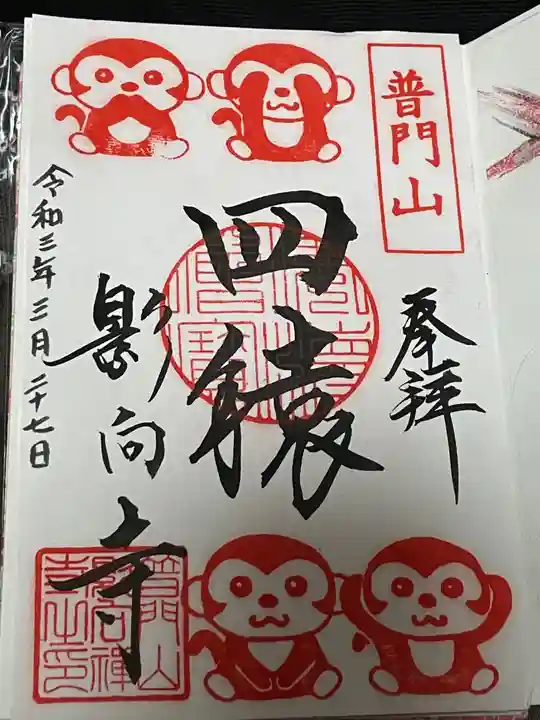 普門山
奉拝
四猿
影向寺
令和三年三月二十七日